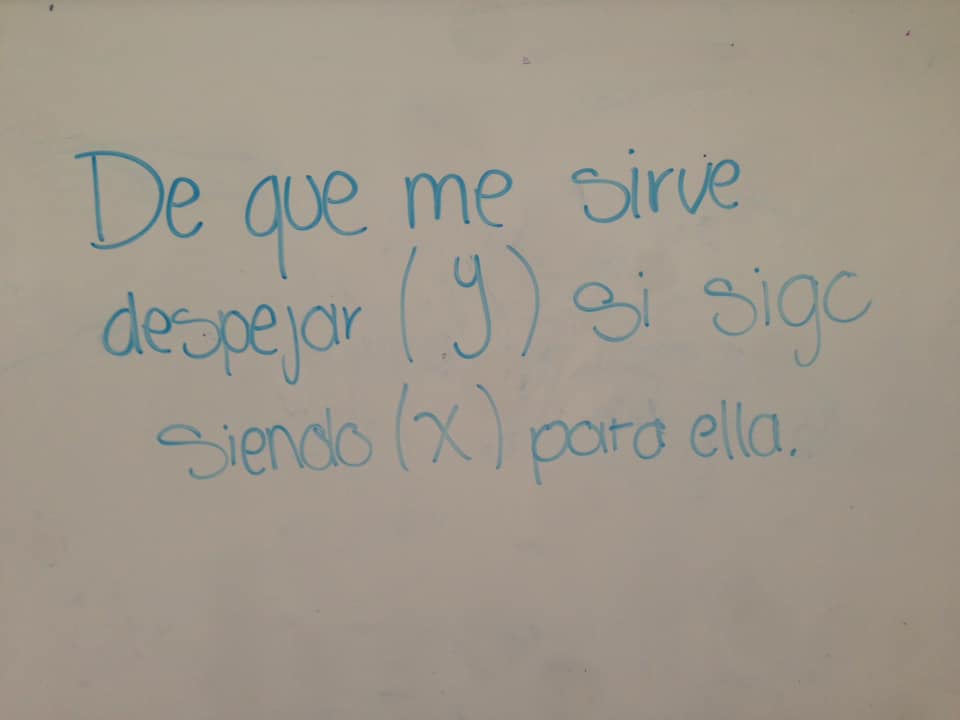 De que me sirve
despejar (y) si sigo
siendo (x) para ella.